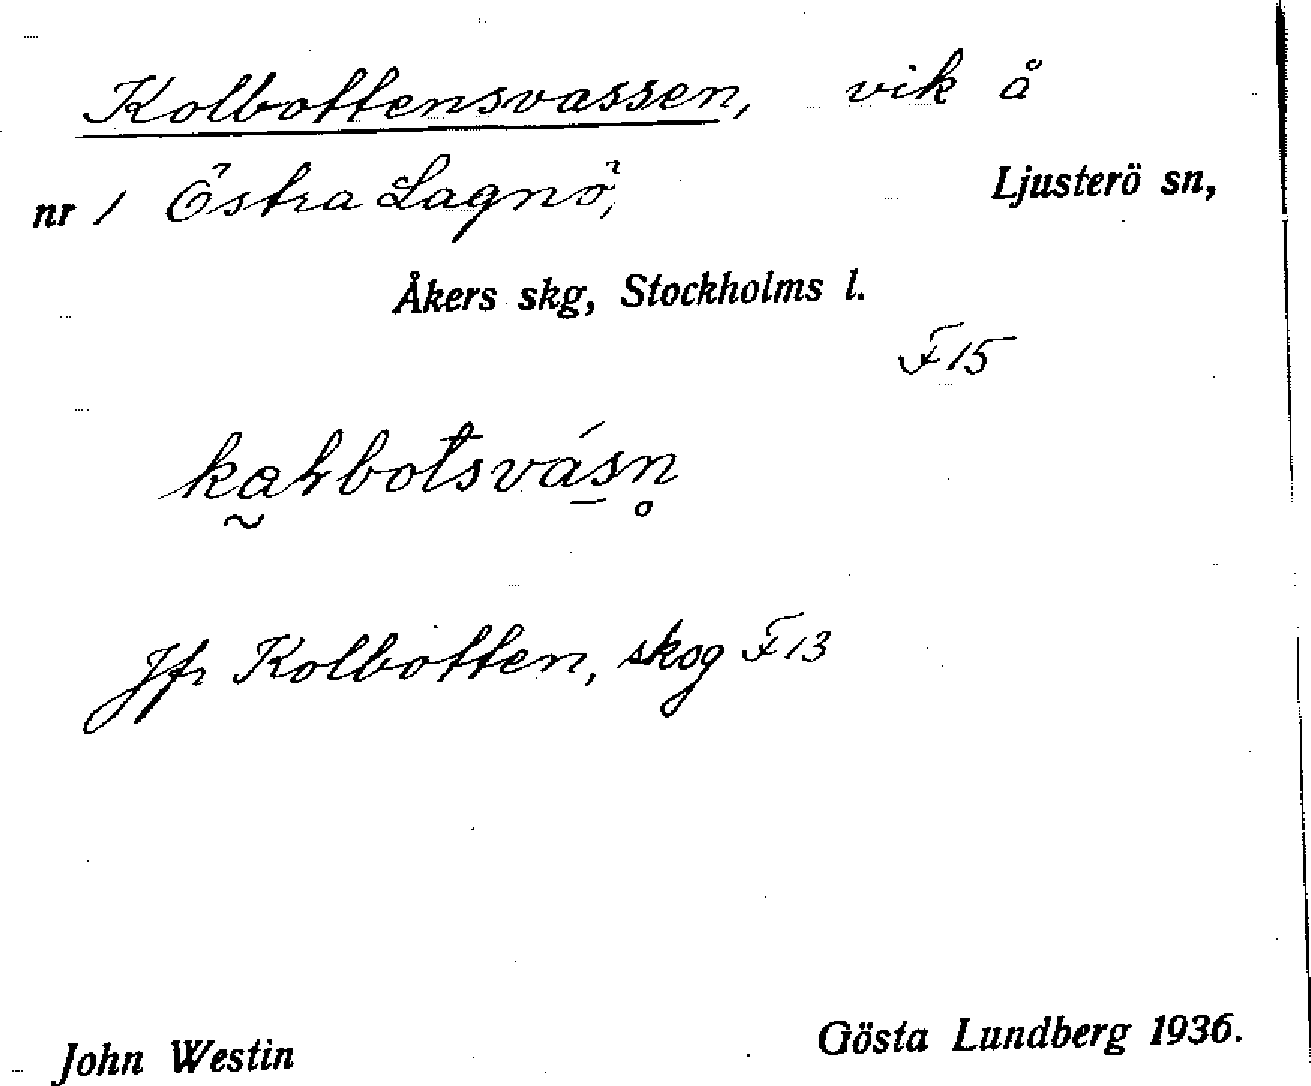 Kolbottensvassen, vik å
nr 1 Östra Lagnö, Ljusterö sn,
Åkers skg, Stockholms l.
F15
Jfr Kolbotten, skog F13
John Westin Gösta Lundberg 1936.